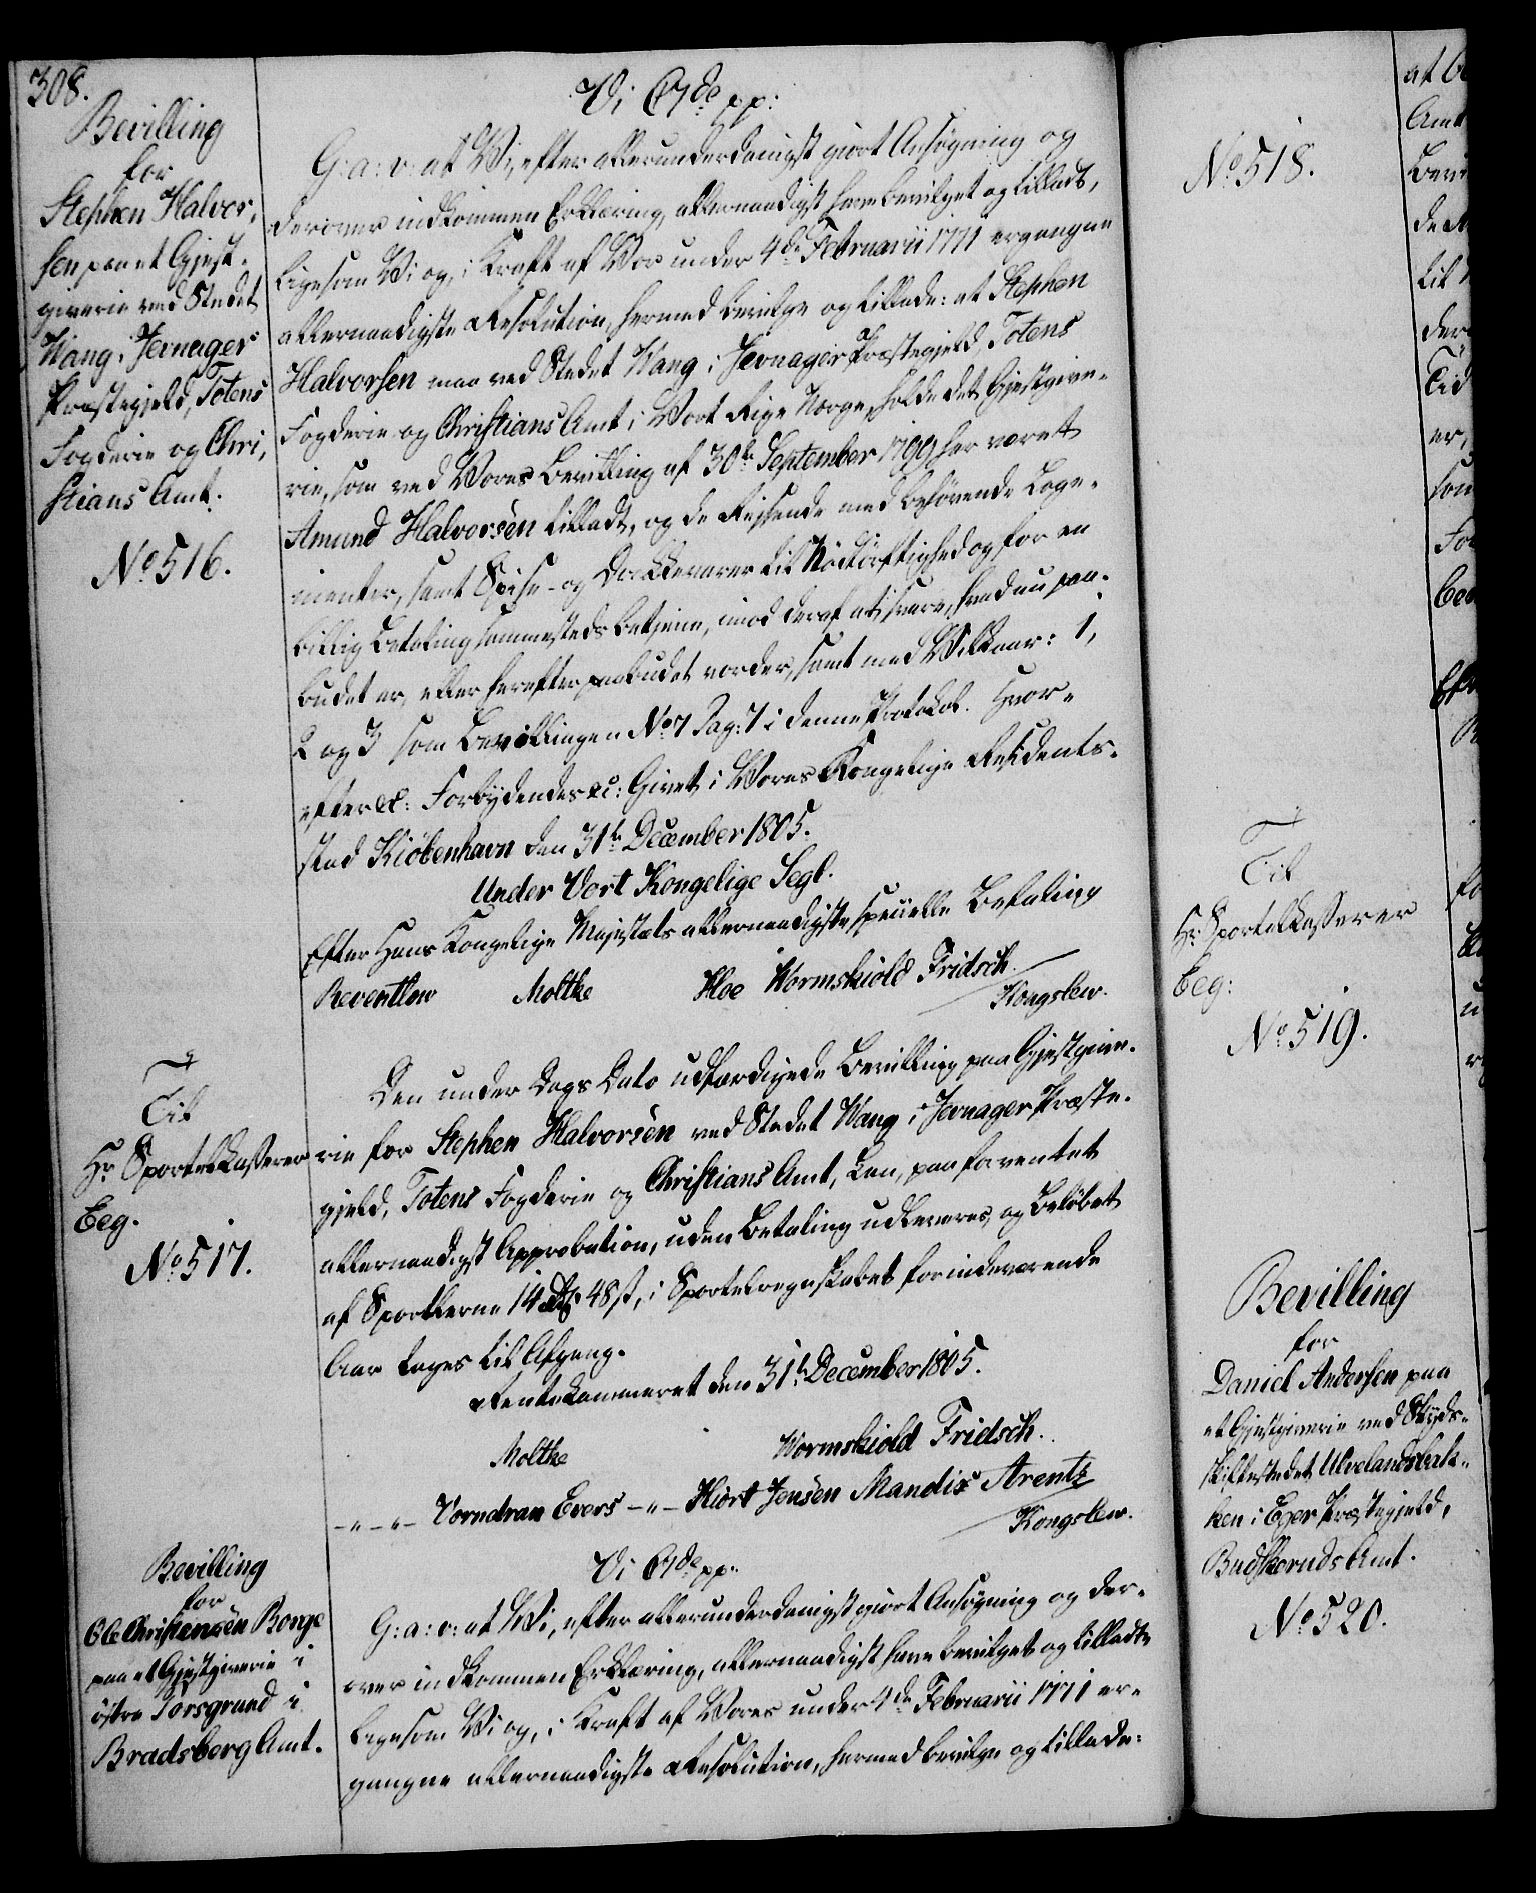 308.
Bevilling
for
Stephen Halvor,
sen paa et Gjest-
giverie ved Stedet
Wang i Jevnager
Præstegjeld, Totens
Fogderie og Chri,
stians Amt.
No. 516.
Vi C7de pp:
G: a: v: at Vi, efter allerunderdanigst giort Ansøgning og
derover indkommen Erklæring, allernaadigst have bevilget og tilladt,
ligesom Vi og, i Kraft af Vor under 4de Februarii 1771 ergangne
allernaadigste Resolution, hermed bevilge og tillade: at Stephen
Halvorsen maa ved Stedet Wang i Jevnager Præstegjeld, Totens
Fogderie og Christians Amt i Vort Rige Norge, holde det Gjestgive-
rie, som ved Vores Bevilling af 30te September 1799 har været
Amund Halvorsen tilladt, og de Reisende med behøvende Loge-
menter, samt Spise- og Drikkevarer til Nødtørftighed og for en
billig Betaling sammesteds betjene, imod deraf at svare, hvad nu paa-
budet er, eller herefter paabudet vorder, samt med Vilkaar: 1,
2 og 3 som Bevillingen No. 7 Pag: 7 i denne Protokol. Hvor-
efter &c: Forbydendes &c: Givet i Vores Kongelige Residents-
stad Kiöbenhavn den 31te December 1805.
Under Vort Kongelige Segl.
Efter Hans Kongelige Majestæts allernaadigste specielle Befaling
Reventlow Moltke Hoe Wormskiold Fridsch.
Kongslew.
Til
Hr. Sportelkasserer
Eeg.
No. 517.
Den under Dags Dato udfærdigede Bevilling paa Gjestgive-
rie for Stephen Halvorsen ved Stedet Wang i Jevnager Præste-
gjeld, Totens Fogderie og Christians Amt, kan, paa forventet
allernaadigst Approbation, uden Betaling udleveres, og Beløbet
af Sportlerne 14 Rd 48 s, i Sportelregnskabet for indeværende
Aar tages til Afgang.
Rentekammeret den 31te December 1805.
Moltke Wormskiold Fridsch.
-"-"- Vorndran Evers -"- Hiort Jensen Mandix Arentz
Kongslew.
Bevilling
for
Ole Christensen Borge
paa et Gjestgiverie i
östre Porsgrund i
Bradsberg Amt.
Vi C7de pp:
G: a: v: at Vi, efter allerunderdanigst giort Ansøgning og der-
over indkommen Erklæring, allernaadigst have bevilget og tilladt,
ligesom Vi og, i Kraft af Vores under 4de Februarii 1771 er-
gangne allernaadigste Resolution, hermed bevilge og tillade:
No. 518.
Til
Hr. Sportelkasserer
Eeg:
No. 519.
Bevilling
for
Daniel Andersen paa
et Gjestgiverie ved Skyds-
skiftestedet Ulvelandsbak-
ken i Eger Præstegjeld,
Buskeruds Amt.
No. 520.
at
Amt
til
Tid
er,